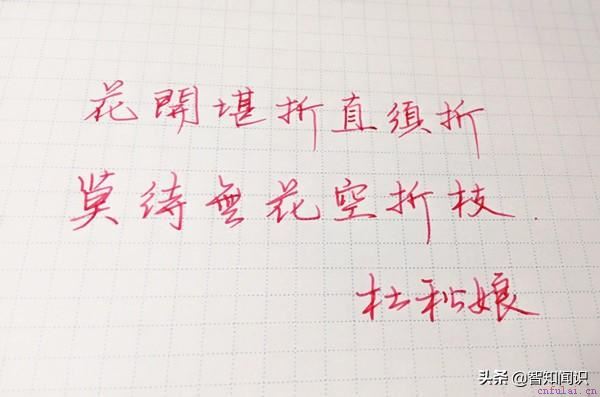 花開堪折直須折
莫待無花空折枝.
杜秋娘
头条 @智知闻识
cnfulai.cn